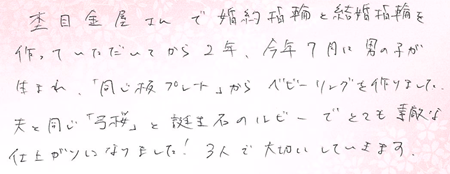 杢目金屋さんで婚約指輪と結婚指輪を
作っていただいてから2年、今年7月に男の子が
生まれ、「同じ板プレート」からベビーリングを作りました。
夫と同じ「弓桜」と誕生石のルビーでとても素敵な
仕上がりになりました！3人で大切にしていきます。